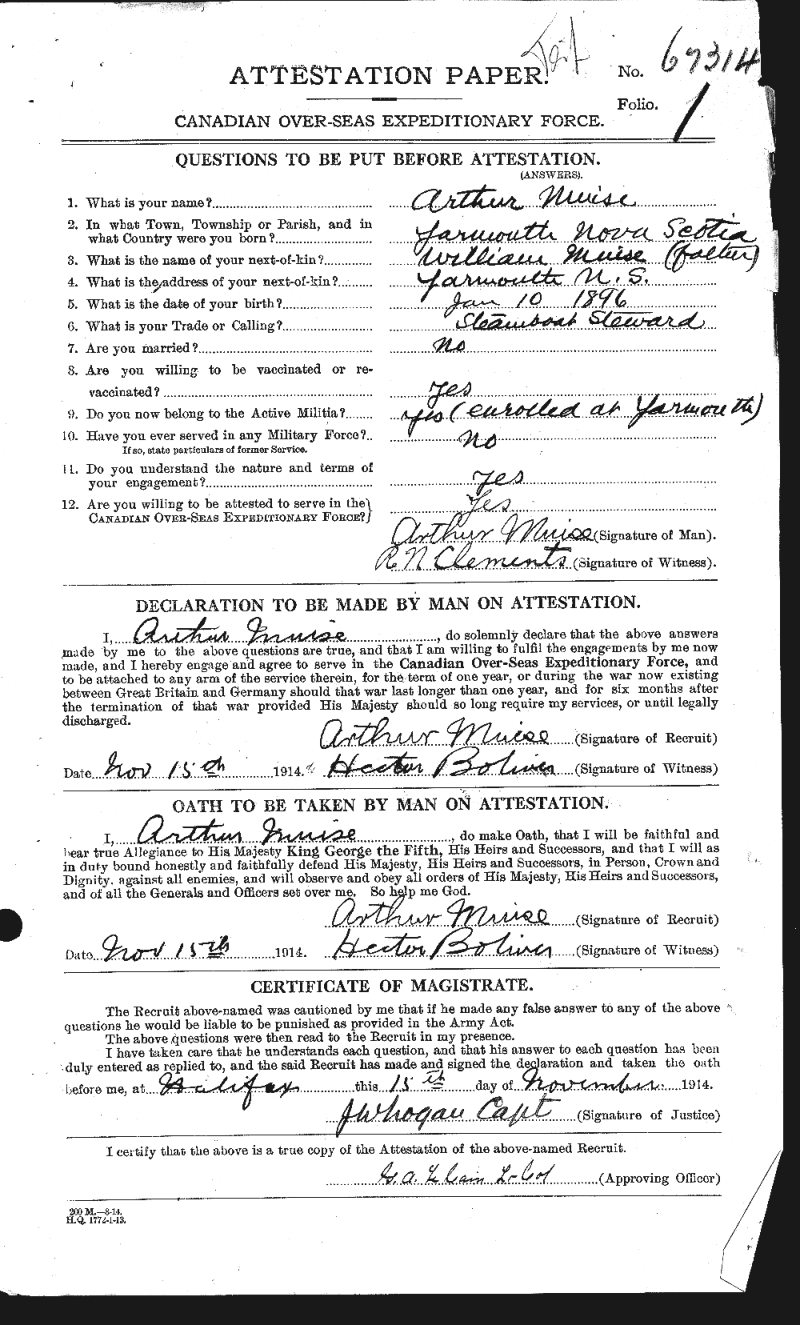 ATTESTATION PAPER.
No. 67314
Folio. 1
CANADIAN OVER-SEAS EXPEDITIONARY FORCE.
QUESTIONS TO BE PUT BEFORE ATTESTATION.
(ANSWERS).
1. What is your name? Arthur Muise
2. In what Town, Township or Parish, and in
what Country were you born? Yarmouth Nova Scotia
3. What is the name of your next-of-kin? William Muise (father)
4. What is the address of your next-of-kin? Yarmouth N.S.
5. What is the date of your birth? Jan 10 1896
6. What is your Trade or Calling? Steamboat Steward
7. Are you married? No
8. Are you willing to be vaccinated or re-
vaccinated? Yes
9. Do you now belong to the Active Militia? yes (enrolled at Yarmouth)
10. Have you ever served in any Military Force?.. No
If so, state particulars of former Service.
11. Do you understand the nature and terms of
your engagement? Yes
12. Are you willing to be attested to serve in the
CANADIAN OVER-SEAS EXPEDITIONARY FORCE? Yes
Arthur Muise (Signature of Man).
R. N Clements (Signature of Witness).
DECLARATION TO BE MADE BY MAN ON ATTESTATION.
I, Arthur Muise, do solemnly declare that the above answers
made by me to the above questions are true, and that I am willing to fulfil the engagements by me now
made, and I hereby engage and agree to serve in the Canadian Over-Seas Expeditionary Force, and
to be attached to any arm of the service therein, for the term of one year, or during the war now existing
between Great Britain and Germany should that war last longer than one year, and for six months after
the termination of that war provided His Majesty should so long require my services, or until legally
discharged.
Arthur Muise (Signature of Recruit)
Date Nov 15th 1914. Hector Boliver (Signature of Witness)
OATH TO BE TAKEN BY MAN ON ATTESTATION.
I, Arthur Muise, do make Oath, that I will be faithful and
bear true Allegiance to His Majesty King George the Fifth, His Heirs and Successors, and that I will as
in duty bound honestly and faithfully defend His Majesty, His Heirs and Successors, in Person, Crown and
Dignity, against all enemies, and will observe and obey all orders of His Majesty, His Heirs and Successors,
and of all the Generals and Officers set over me. So help me God.
Arthur Muise (Signature of Recruit)
Date Nov 15th 1914. Hector Boliver (Signature of Witness)
CERTIFICATE OF MAGISTRATE.
The Recruit above-named was cautioned by me that if he made any false answer to any of the above
questions he would be liable to be punished as provided in the Army Act.
The above questions were then read to the Recruit in my presence.
I have taken care that he understands each question, and that his answer to each question has been
duly entered as replied to, and the said Recruit has made and signed the declaration and taken the oath
before me, at Halifax this 15th day of November 1914.
JWhogan Capt (Signature of Justice)
I certify that the above is a true copy of the Attestation of the above-named Recruit.
G. A. LeCain Lt-Col (Approving Officer)
200 M.—8-14.
H.Q. 1772-1-13.